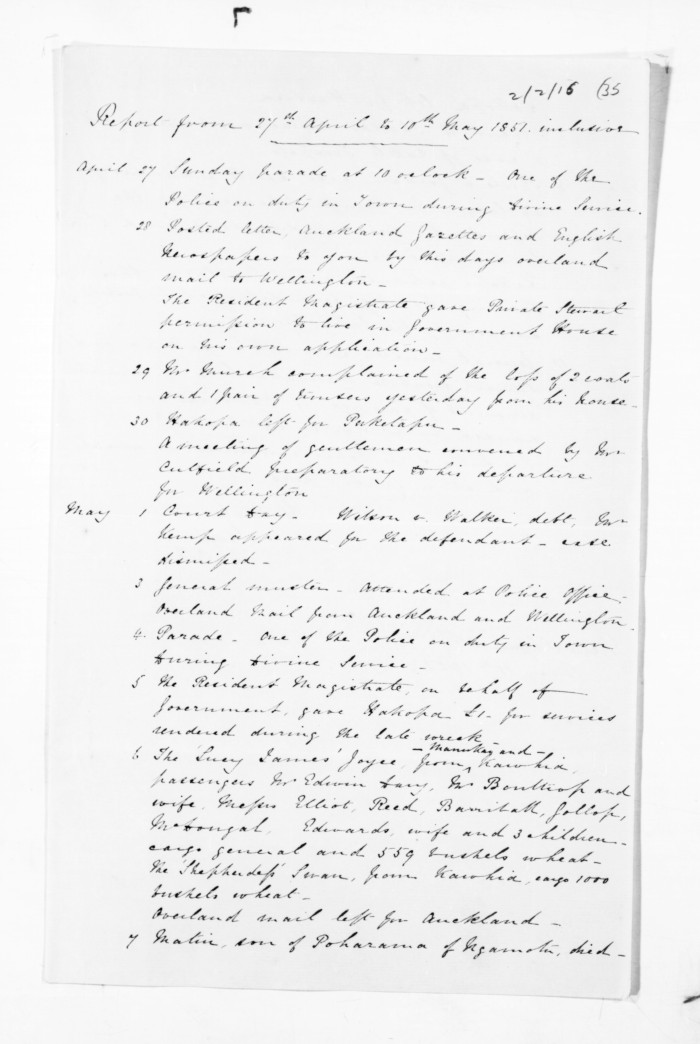 2/2/16 (35
Report from 27th April to 10th May 1851. inclusive
April 27 Sunday parade at 10 oclock - One of the
Police on duty in Town during Divine Service.
28 Posted letter, Auckland Gazettes and English
Newspapers to you by this days overland
mail to Wellington -
The Resident Magistrate gave Private Stewart
permission to live in Government House
on his own application -
29 Mr Murch complained of the loss of 2 coats
and 1 pair of trousers yesterday from his house -
30 Hakopa left for Puketapu -
A meeting of gentlemen convened by Mr
Cutfield preparatory to his departure
for Wellington
May 1 Court Day - Wilson v. Walker, debt, Mr
Kemp appeared for the defendant - case
dismissed -
3 General muster - Attended at Police Office -
Overland Mail from Auckland and Wellington.
4. Parade - One of the Police on duty in Town
During Divine Service -
5 The Resident Magistrate, on behalf of
Government, gave Hakopa £1- for services
rendered during the late wreck
- Manukau and -
6 The 'Lucy James' Joyce, from Kawhia,
passengers Mr Edwin Davy, Mr and
wife, Messrs Elliot, Reed, Gollop,
McDougal, Edwards, wife and 3 children -
cargo general and 559 bushels wheat -
The 'Shepherdess' Swan, from Kawhia, cargo 1000
bushels wheat -
Overland mail left for Auckland -
7 Matiu, son of Poharama of Ngamotu, died -